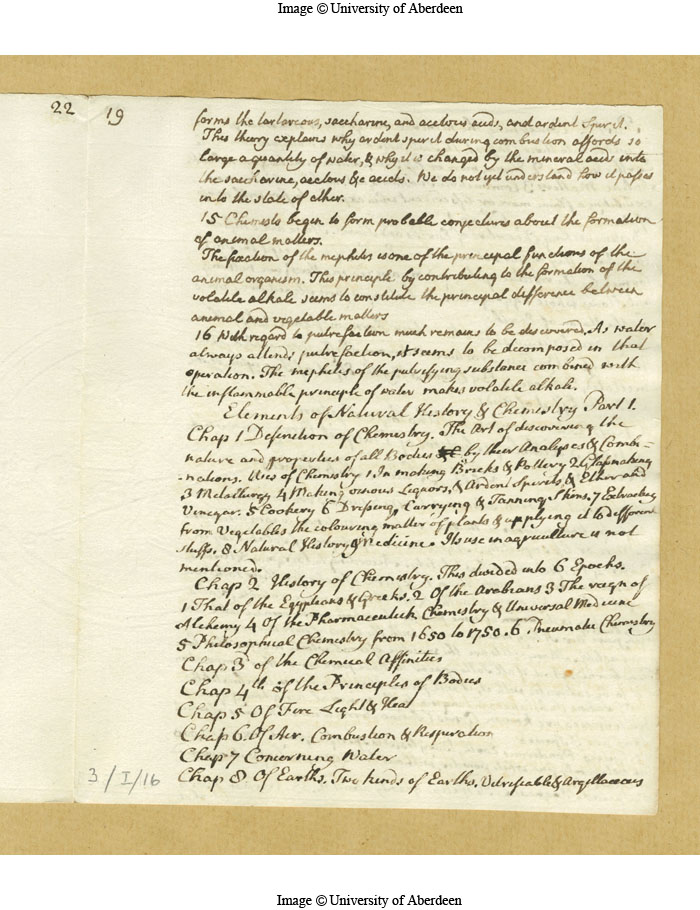 Image © University of Aberdeen
22 19
forms the tartareous, saccharine, and acetous acids, and ardent Spirit.
This theory explains why ardent spirit during combustion affords so
large a quantity of water, & why it is changed by the mineral acids into
the saccharine, acetous &c acids. We do not yet understand how it passes
into the state of ether.
15 Chemists begin to form probable conjectures about the formation
of animal matters.
The fixation of the mephitis is one of the principal functions of the
animal organism. This principle by contributing to the formation of the
volatile alkali seems to constitute the principal difference between
animal and vegetable matters
16 With regard to putrefaction much remains to be discovered. As water
always attends putrefaction, it seems to be decomposed in that
operation. The mephitis of the putrifying substance combined with
the inflammable principle of water makes volatile alkali.
Elements of Natural History & Chemistry Part 1.
Chap 1 Definition of Chemistry. The Art of discovering the
nature and properties of all Bodies by their Analyses & Combi-
-nations. Uses of Chemistry 1 In making Bricks & Pottery 2 Glassmaking
3 Metallurgy 4 Making vinous Liquors, & Ardent Spirits, & Ether and
Vinegar. 5 Cookery 6 Dressing, Currying & Tanning Skins. 7 Extracting
from Vegetables the colouring matter of plants & applying it to different
stuffs. 8 Natural History 9 Medicine. Its use in agriculture is not
mentioned.
Chap 2 History of Chemistry. This divided into 6 Epochs.
1 That of the Egyptians & Greeks. 2 Of the Arabians 3 The reign of
Alchemy 4 Of the Pharmaceutick Chemistry & Universal Medicine
5 Philosophical Chemistry from 1650 to 1750. 6 Pneumatic Chemistry
Chap 3 of the Chemical Affinities
Chap 4th of the Principles of Bodies
Chap 5 Of Fire Light & Heat
Chap 6. Of Air. Combustion & Respiration
Chap 7 Concerning Water
3/I/16 Chap 8 Of Earths. Two kinds of Earths. Vitrifiable & Argillaceous
Image © University of Aberdeen